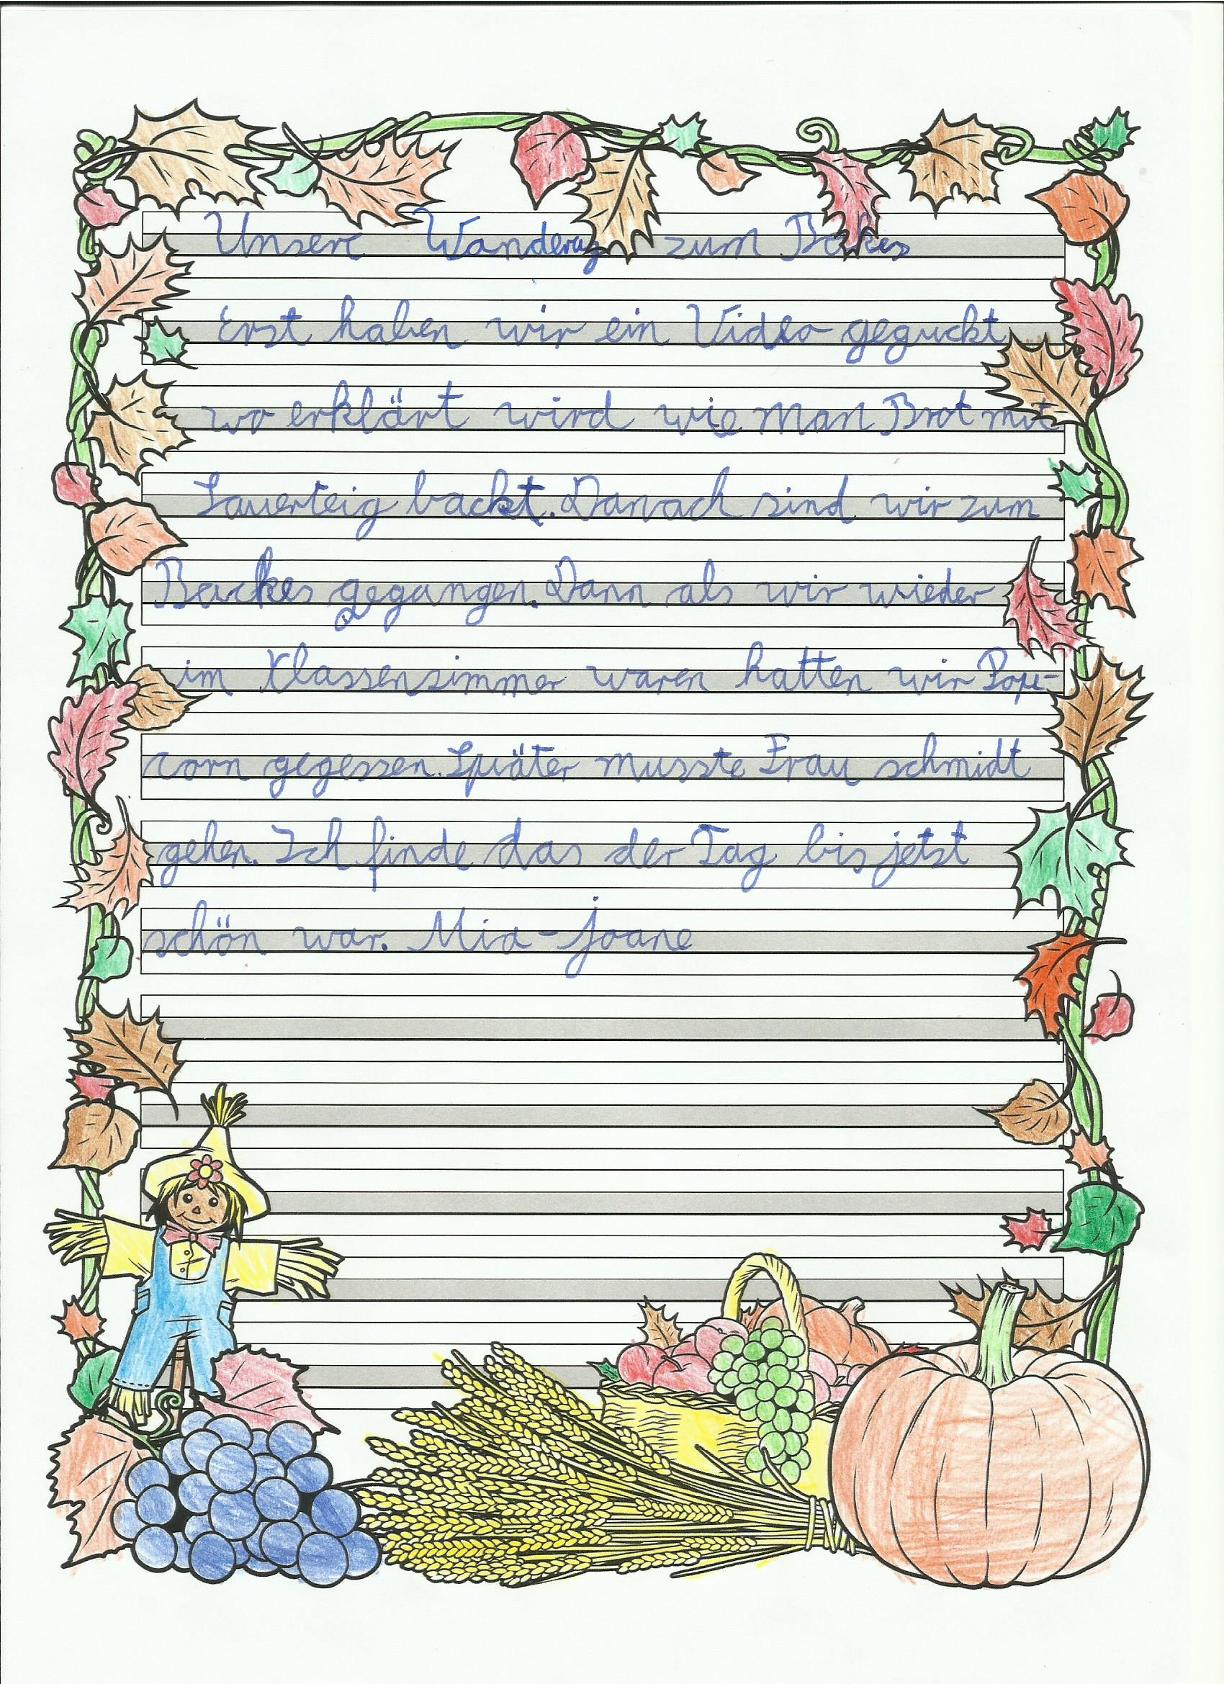 Unsere Wanderug zum Backes
Erst haben wir ein Video geguckt
wo erklärt wird wie man Brot mit
Sauerteig backt. Danach sind wir zum
Backes gegangen. Dann als wir wieder
im Klassenzimmer waren hatten wir Pop-
corn gegessen. Später musste Frau schmidt
gehen. Ich finde das der Tag bis jetzt
schön war. Mia-joane